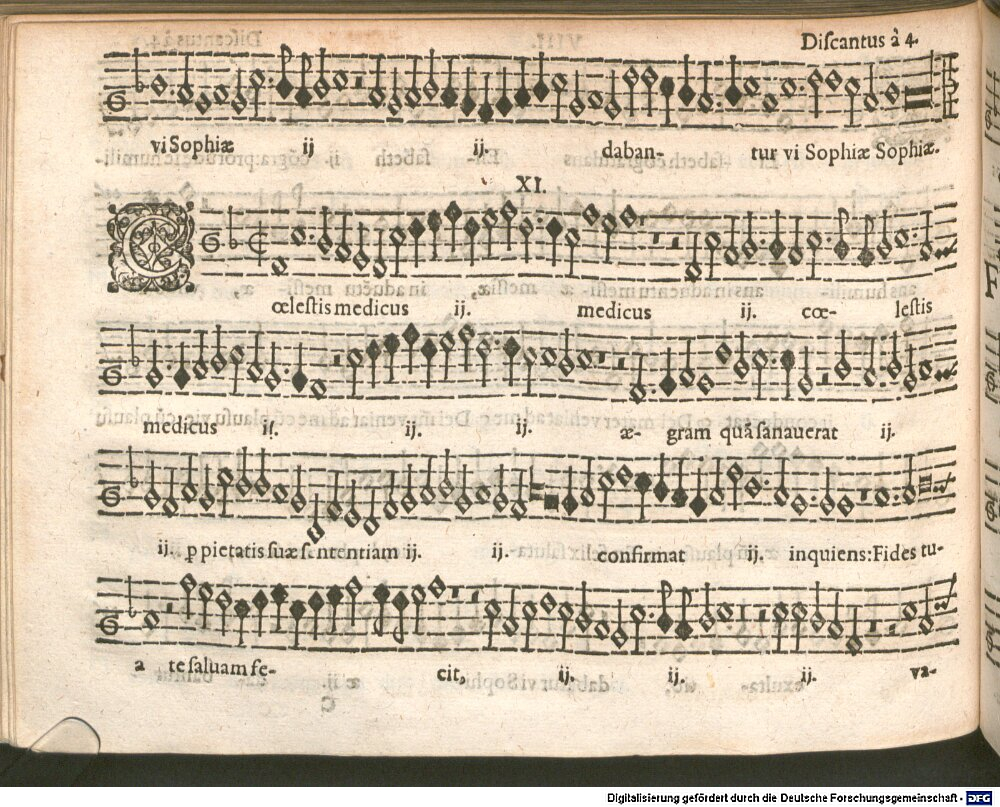 Discantus à 4.
vi Sophiæ ij ij. daban- tur vi Sophiæ Sophiæ.
XI.
C
œlestis medicus ij. medicus ij. cœ- lestis
medicus ij. ij. ij. æ- gram quã sanauerat ij.
ij. ꝓ pietatis suæ sententiam ij. ij. confirmat ij. inquiens: Fides tu-
a te saluam fe- cit, ij. ij. ij. va-
Digitalisierung gefördert durch die Deutsche Forschungsgemeinschaft - DFG